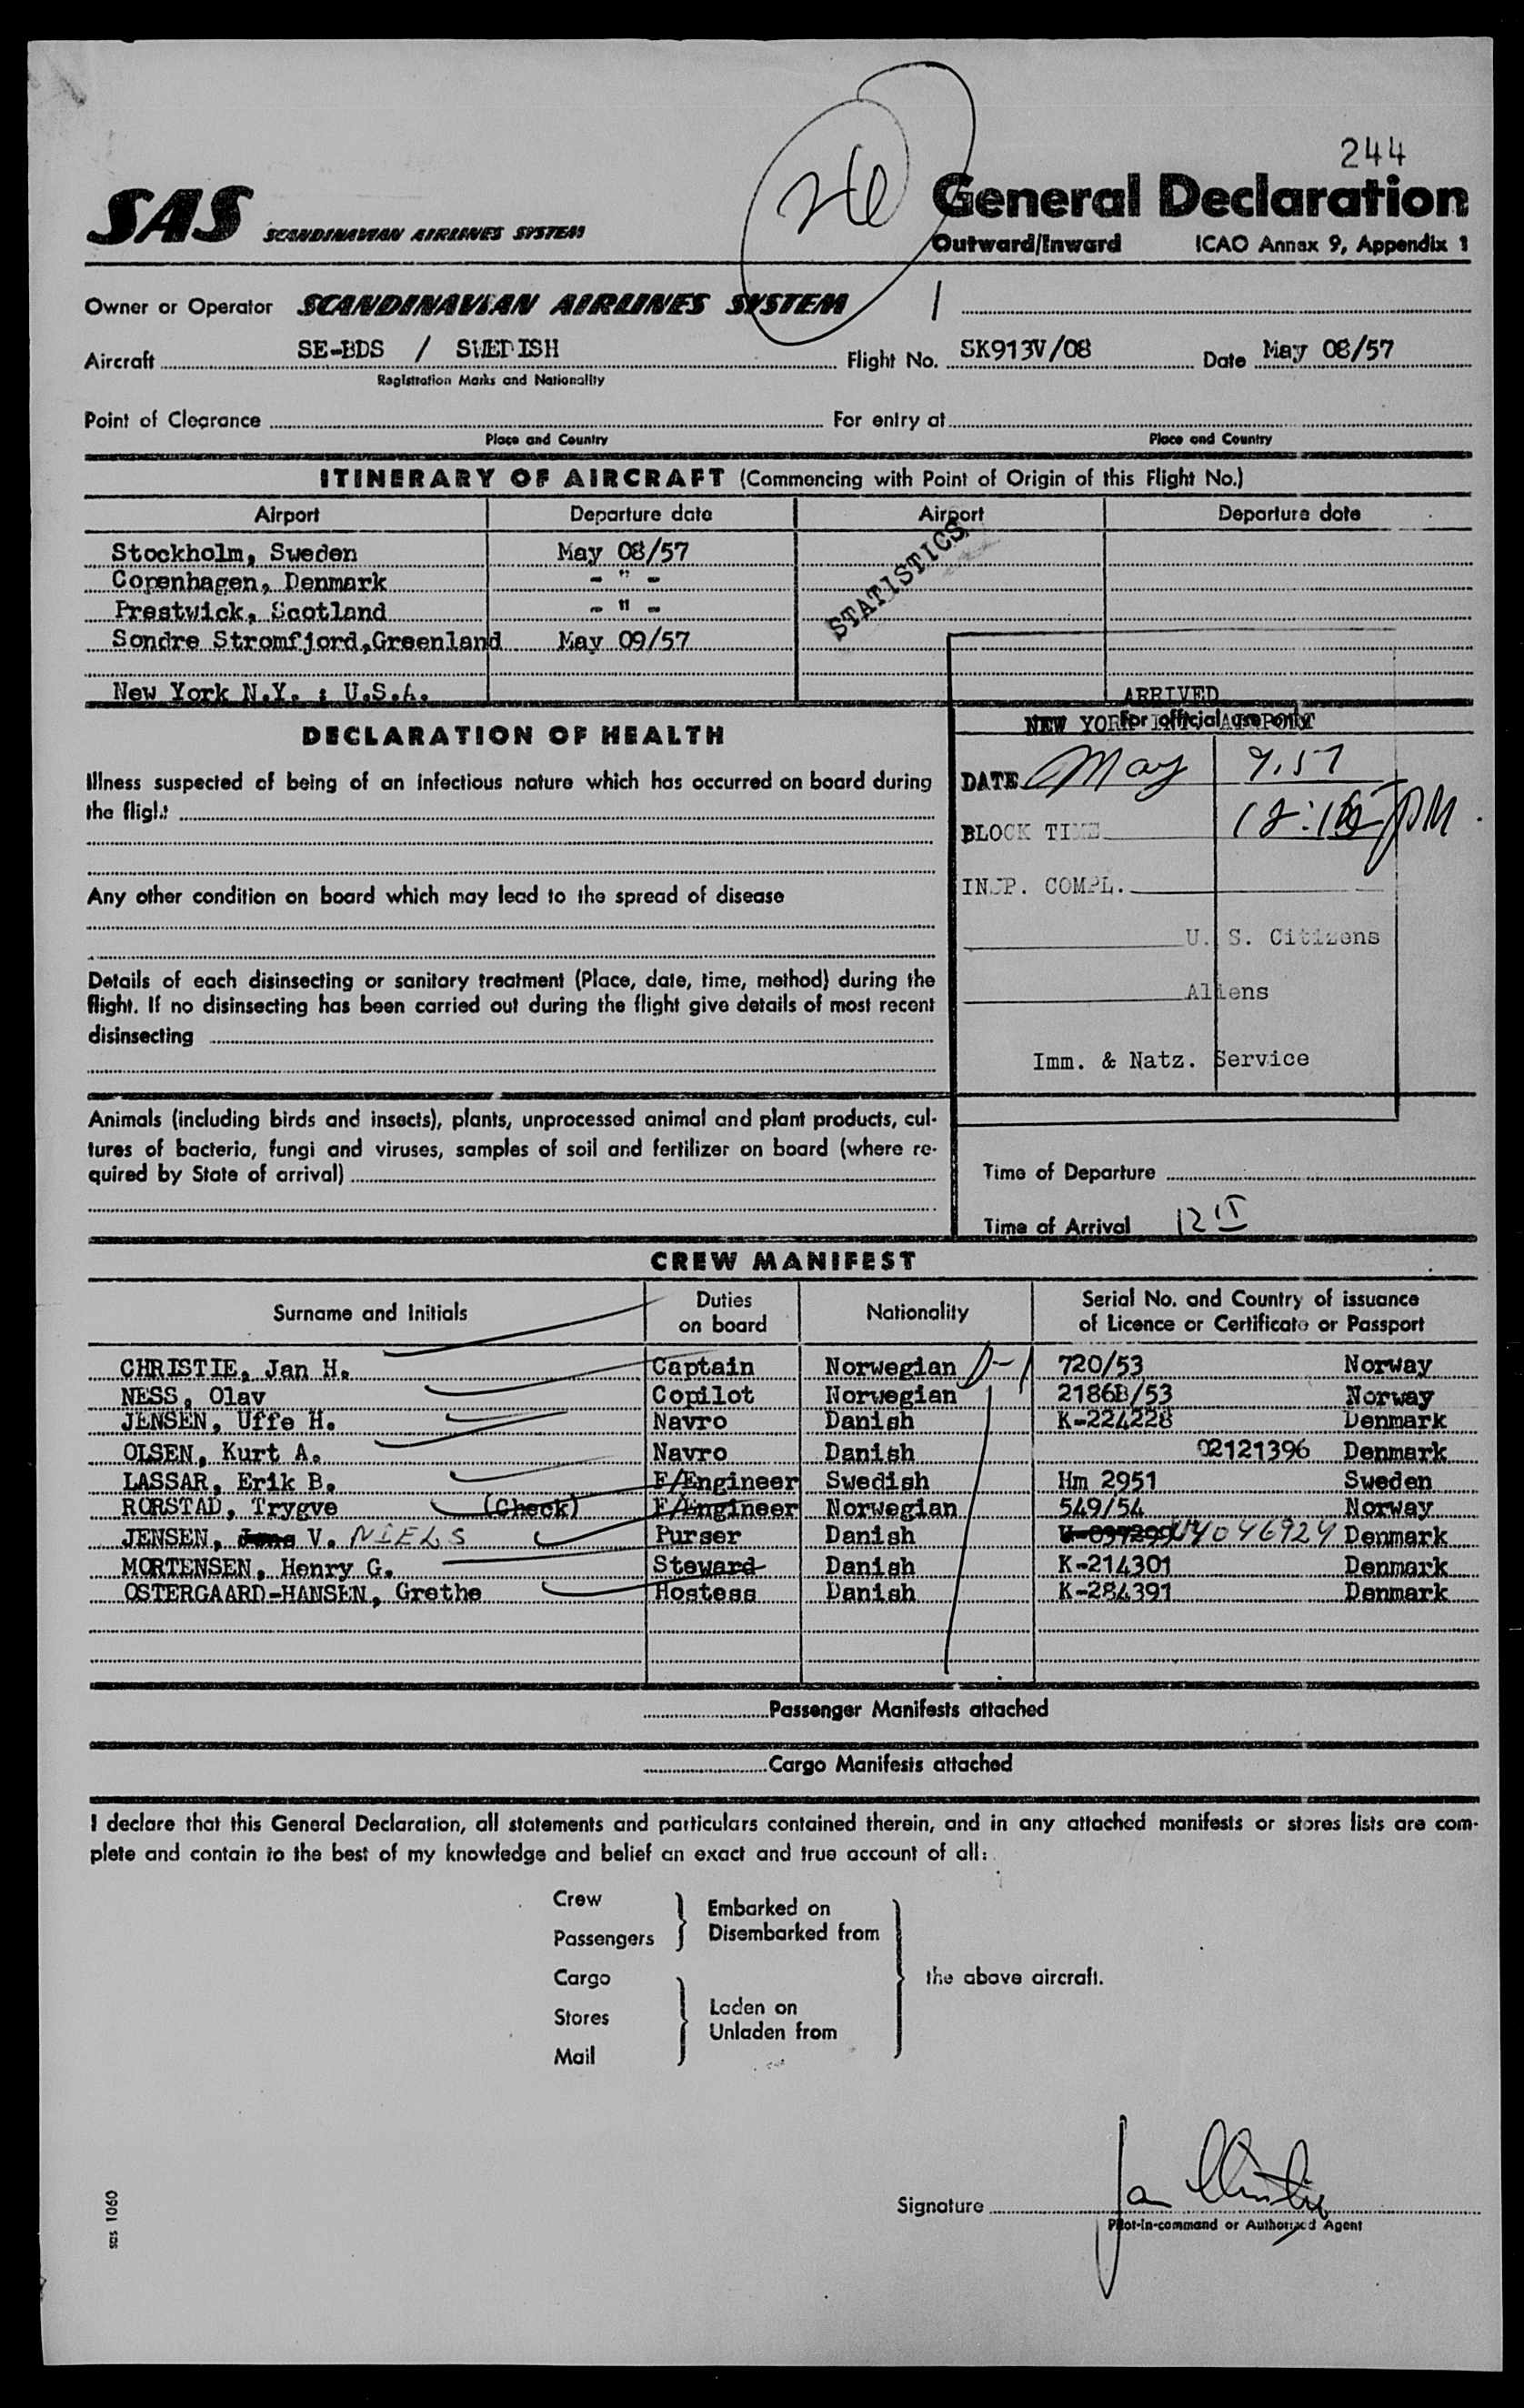 244
SAS SCANDINAVIAN AIRLINES SYSTEM
General Declaration
Outward/Inward ICAO Annex 9, Appendix 1
Owner or Operator SCANDINAVIAN AIRLINES SYSTEM
Aircraft SE-BDS / SWEDISH Flight No. SK913V/08 Date May 08/57
Registration Marks and Nationality
Point of Clearance For entry at
Place and Country Place and Country
ITINERARY OF AIRCRAFT (Commencing with Point of Origin of this Flight No.)
Airport Departure date Airport Departure date
Stockholm, Sweden May 08/57
Copenhagen, Denmark - " -
Prestwick, Scotland - " -
STATISTICS
Sondre Stromfjord,Greenland May 09/57
New York N.Y. : U.S.A.
ARRIVED
For official use only
NEW YORK INT'L AIRPORT
DECLARATION OF HEALTH
Illness suspected of being of an infectious nature which has occurred on board during
the flight
DATE May 9.57
BLOCK TIME PM
Any other condition on board which may lead to the spread of disease
INSP. COMPL.
U. S. Citizens
Details of each disinsecting or sanitary treatment (Place, date, time, method) during the
flight. If no disinsecting has been carried out during the flight give details of most recent
disinsecting
Aliens
Imm. & Natz. Service
Animals (including birds and insects), plants, unprocessed animal and plant products, cul-
tures of bacteria, fungi and viruses, samples of soil and fertilizer on board (where re-
quired by State of arrival)
Time of Departure
Time of Arrival 12 15
CREW MANIFEST
Surname and Initials Duties on board Nationality Serial No. and Country of issuance of Licence or Certificate or Passport
CHRISTIE, Jan H. Captain Norwegian 720/53 Norway
NESS, Olav Copilot Norwegian 2186B/53 Norway
JENSEN, Uffe H. Navro Danish K-224228 Denmark
OLSEN, Kurt A. Navro Danish 02121396 Denmark
LASSAR, Erik B. F/Engineer Swedish Hm 2951 Sweden
RORSTAD, Trygve (Check) F/Engineer Norwegian 549/54 Norway
JENSEN, V. NIELS Purser Danish 4046924 Denmark
MORTENSEN, Henry G. Steward Danish K-214301 Denmark
OSTERGAARD-HANSEN, Grethe Hostess Danish K-284391 Denmark
Passenger Manifests attached
Cargo Manifests attached
I declare that this General Declaration, all statements and particulars contained therein, and in any attached manifests or stores lists are com-
plete and contain to the best of my knowledge and belief an exact and true account of all:
Crew
Passengers
Embarked on
Disembarked from
Cargo
Stores
Mail
Laden on
Unladen from
the above aircraft.
Signature Jan Christie
Pilot-in-command or Authorized Agent
sas 1060